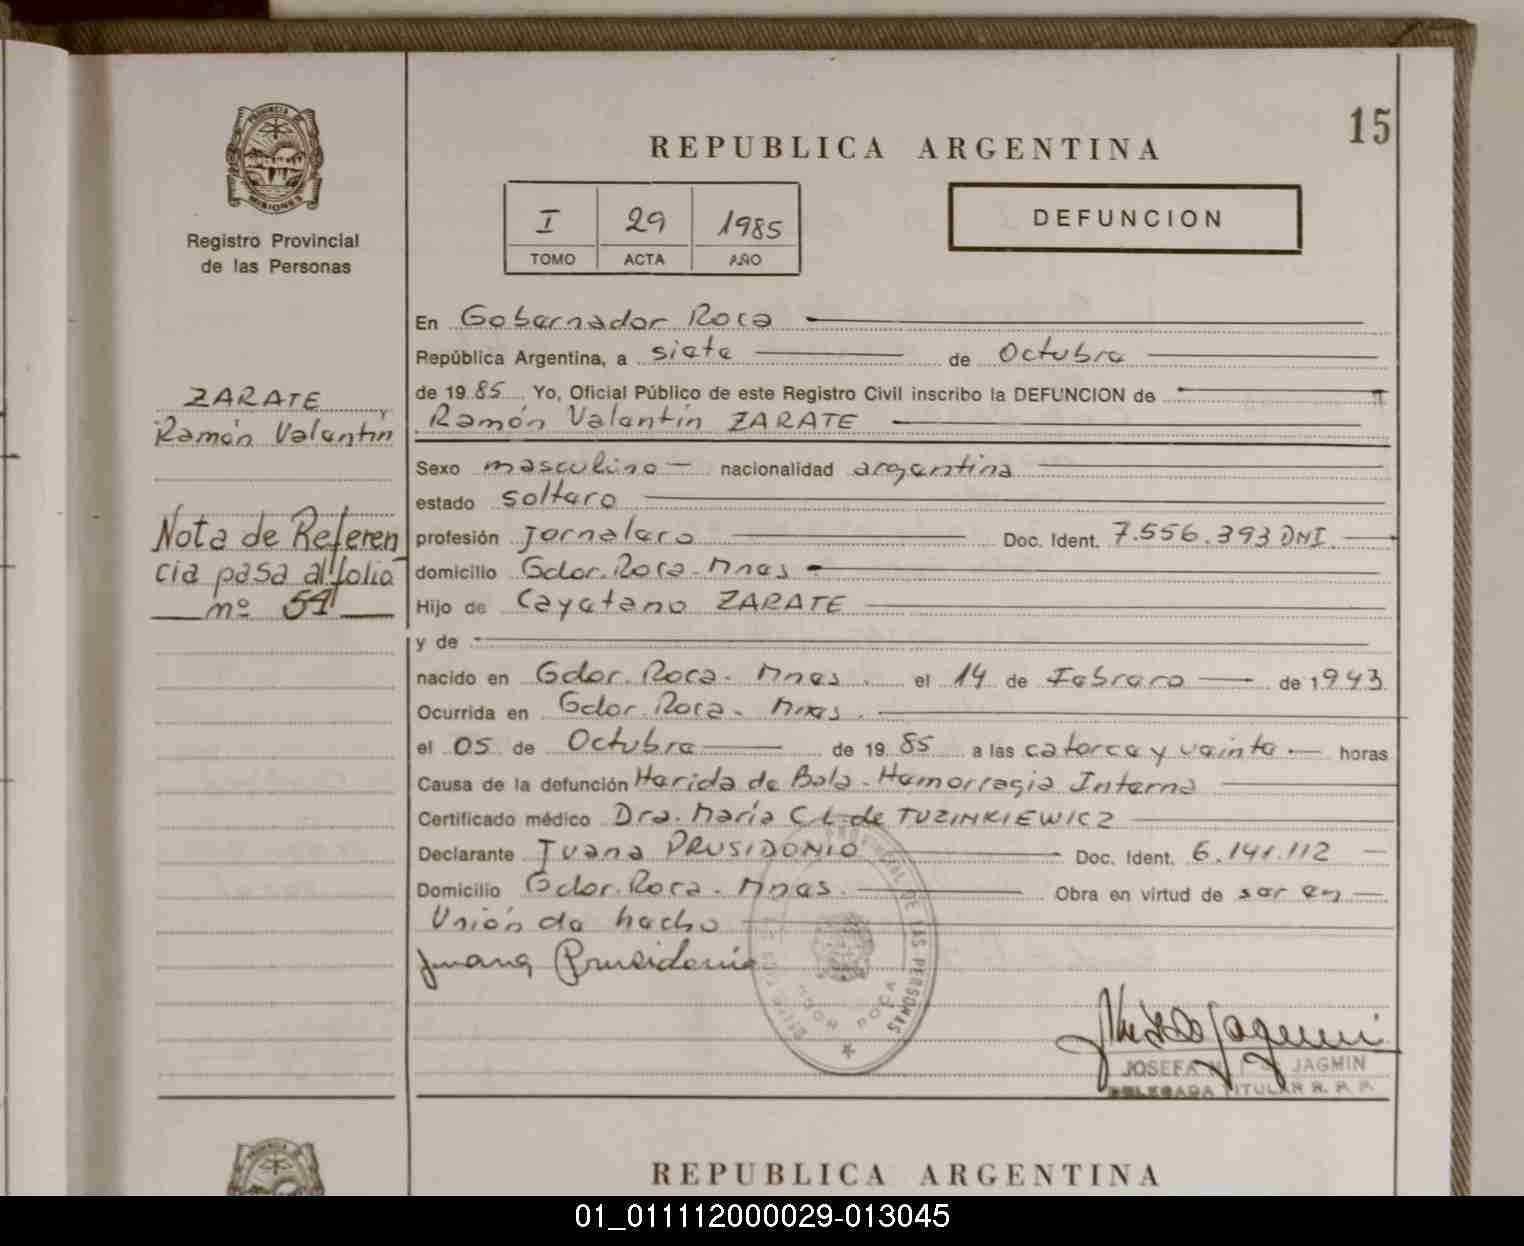 15
PROVINCIA DE
MISIONES
Registro Provincial
de las Personas
REPUBLICA ARGENTINA
I 29 1985
TOMO ACTA AÑO
DEFUNCION
ZARATE
Ramón Valentín
Nota de Referen
cia pasa al folio
nº 51
En Gobernador Roca
República Argentina, a siete de Octubre
de 1985 Yo, Oficial Público de este Registro Civil inscribo la DEFUNCION de
Ramón Valentín ZARATE
Sexo masculino nacionalidad argentina
estado soltero
profesión Jornalero Doc. Ident. 7.556.393 DNI
domicilio Gdor. Roca - Mnes
Hijo de Cayetano ZARATE
y de
nacido en Gdor. Roca - Mnes. el 14 de Febrero de 1943
Ocurrida en Gdor. Roca - Mnes.
el 05 de Octubre de 1985 a las catorce y veinte horas
Causa de la defunción Herida de Bala - Hemorragia Interna
Certificado médico Dra. María C. L. de TUZINKIEWICZ
Declarante Juana PRUSIDONIO Doc. Ident. 6.141.112
Domicilio Gdor. Roca - Mnes. Obra en virtud de ser en
Unión de hecho
Juana Prusidonio
PROVINCIAL DE LAS PERSONAS
GDOR ROCA
JOSEFA JAGMIN
DELEGADA TITULAR R. P. P.
PROVINCIA DE
REPUBLICA ARGENTINA
01_011112000029-013045